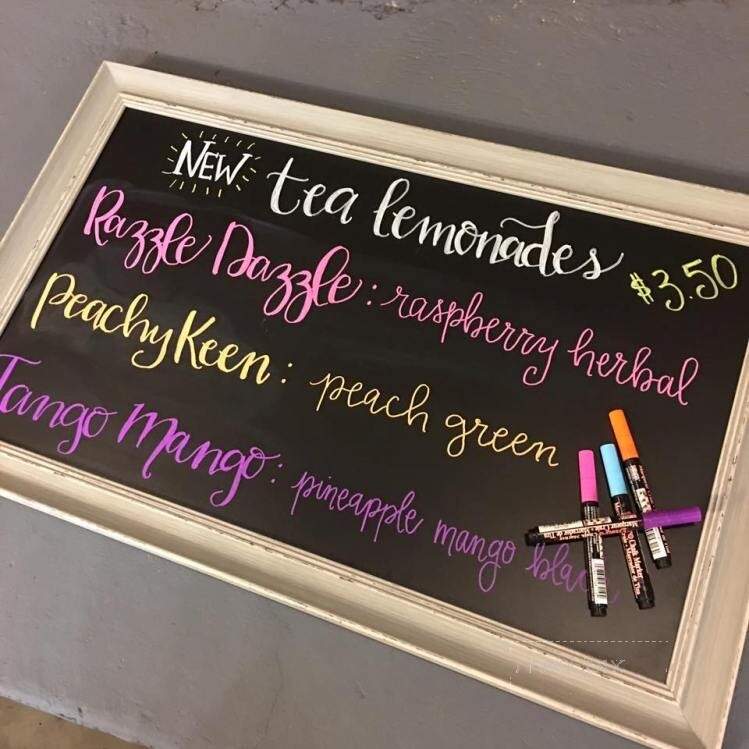 NEW tea lemonades $3.50
Razzle Dazzle: raspberry herbal
Peachy Keen: peach green
Tango Mango: pineapple mango